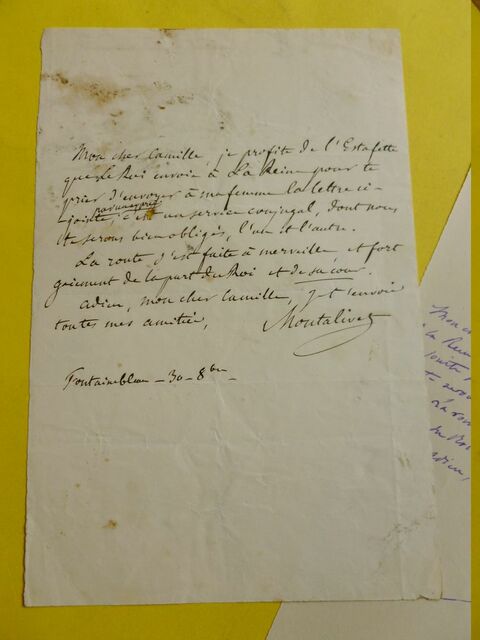 Mon cher Camille, je profite de l'Estafette
que le Roi envoie à La Reine pour te
prier d'envoyer à ma femme la lettre ci-
jointe; c'est un service conjugal, dont nous
te serons bien obligés, l'un et l'autre.
La route s'est faite à merveille et fort
gaiement de la part du Roi et de sa cour.
adieu, mon cher Camille, je t'envoie
toutes mes amitiés,
Montalivet
Fontainebleau - 30 - 8bre -
Mon
la Reine